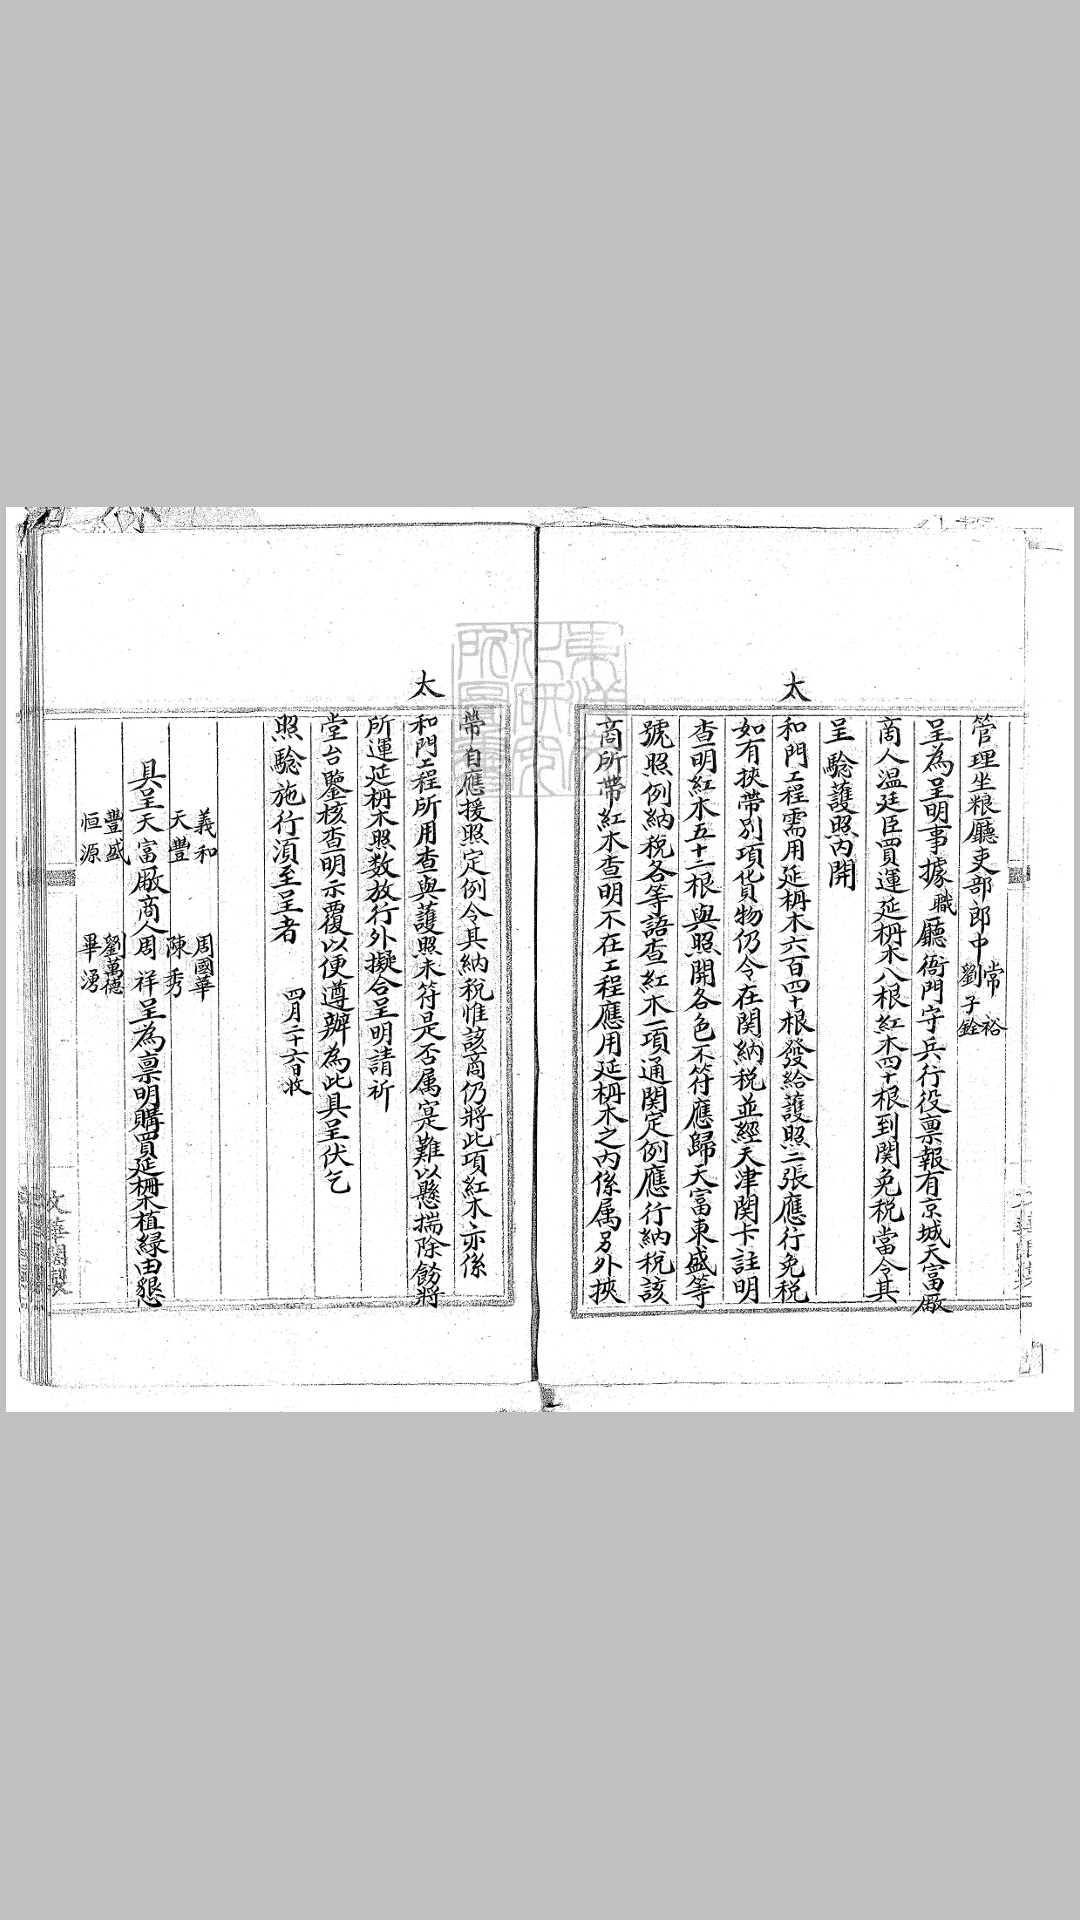 管理坐粮廳吏部郎中常裕劉子銓
呈為呈明事據職廳衙門守兵行役稟報有京城天富廠
商人温廷臣買運延枬木八根紅木四十根到関免税當令其
呈驗護照內開
太
和門工程需用延枬木六百四十根發給護照二張應行免税
如有挾帶別項貨物仍令在関納税並經天津関卡註明
查明紅木五十二根與照開各色不符應歸天富東盛等
號照例納税各等語查紅木一項通関定例應行納税該
商所帶紅木查明不在工程應用延枬木之內係属另外挾
帶自應援照定例令其納税惟該商仍將此項紅木亦係
太
和門工程所用查與護照未符是否属寔難以懸揣除飭將
所運延枬木照数放行外擬合呈明請祈
堂台鑒核查明示覆以便遵辦為此具呈伏乞
照驗施行湏至呈者 四月二十六日收
義和 周國華
天豐 陳秀
具呈天富廠商人周祥呈為稟明購買延枬木植緣由懇
豐盛 劉萬德
恒源 畢湧